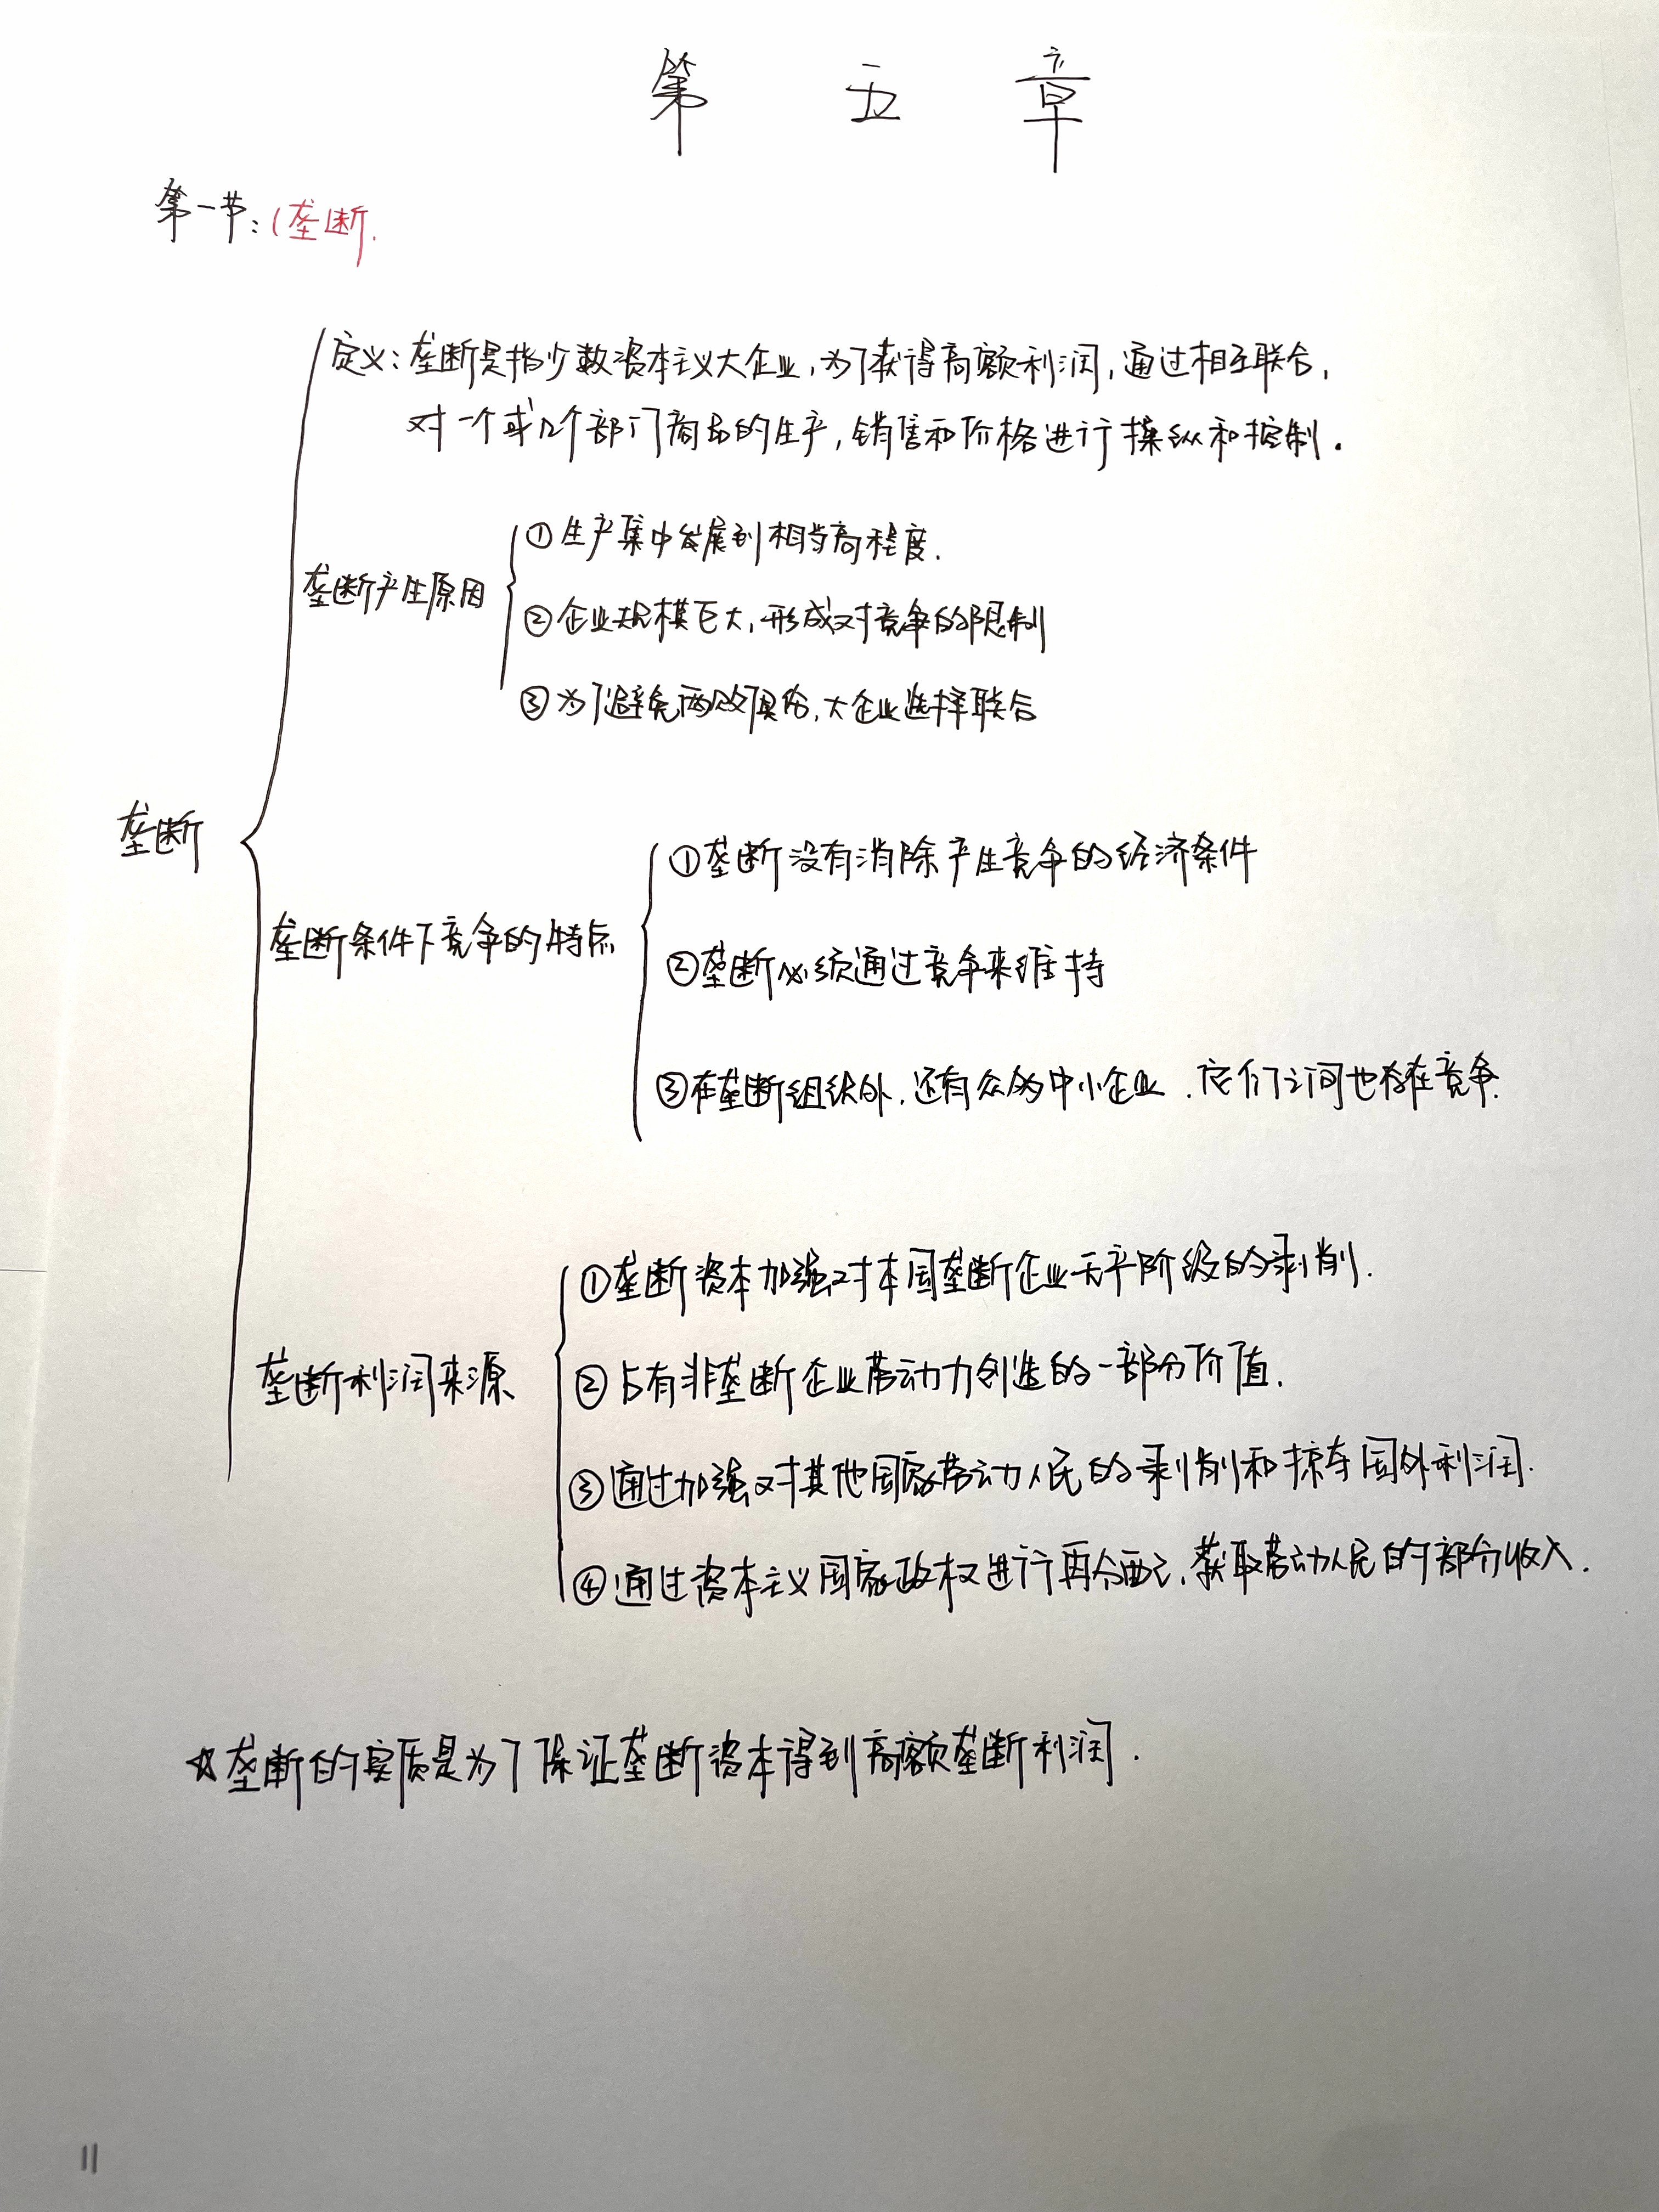 第五章
第一节:(垄断.
定义:垄断是指少数资本主义大企业,为了获得高额利润,通过相互联合,
对一个或几个部门商品的生产,销售和价格进行操纵和控制.
垄断产生原因
①生产集中发展到相当高程度.
②企业规模巨大,形成对竞争的限制
③为了避免两败俱伤,大企业选择联合
垄断
垄断条件下竞争的特点
①垄断没有消除产生竞争的经济条件
②垄断必须通过竞争来维持
③在垄断组织外,还有众多中小企业.它们之间也存在竞争.
垄断利润来源
①垄断资本加强对本国垄断企业无产阶级的剥削.
②占有非垄断企业劳动力创造的一部分价值.
③通过加强对其他国家劳动人民的剥削和掠夺国外利润.
④通过资本主义国家政权进行再分配,获取劳动人民的部分收入.
☆垄断的实质是为了保证垄断资本得到高额垄断利润.
11